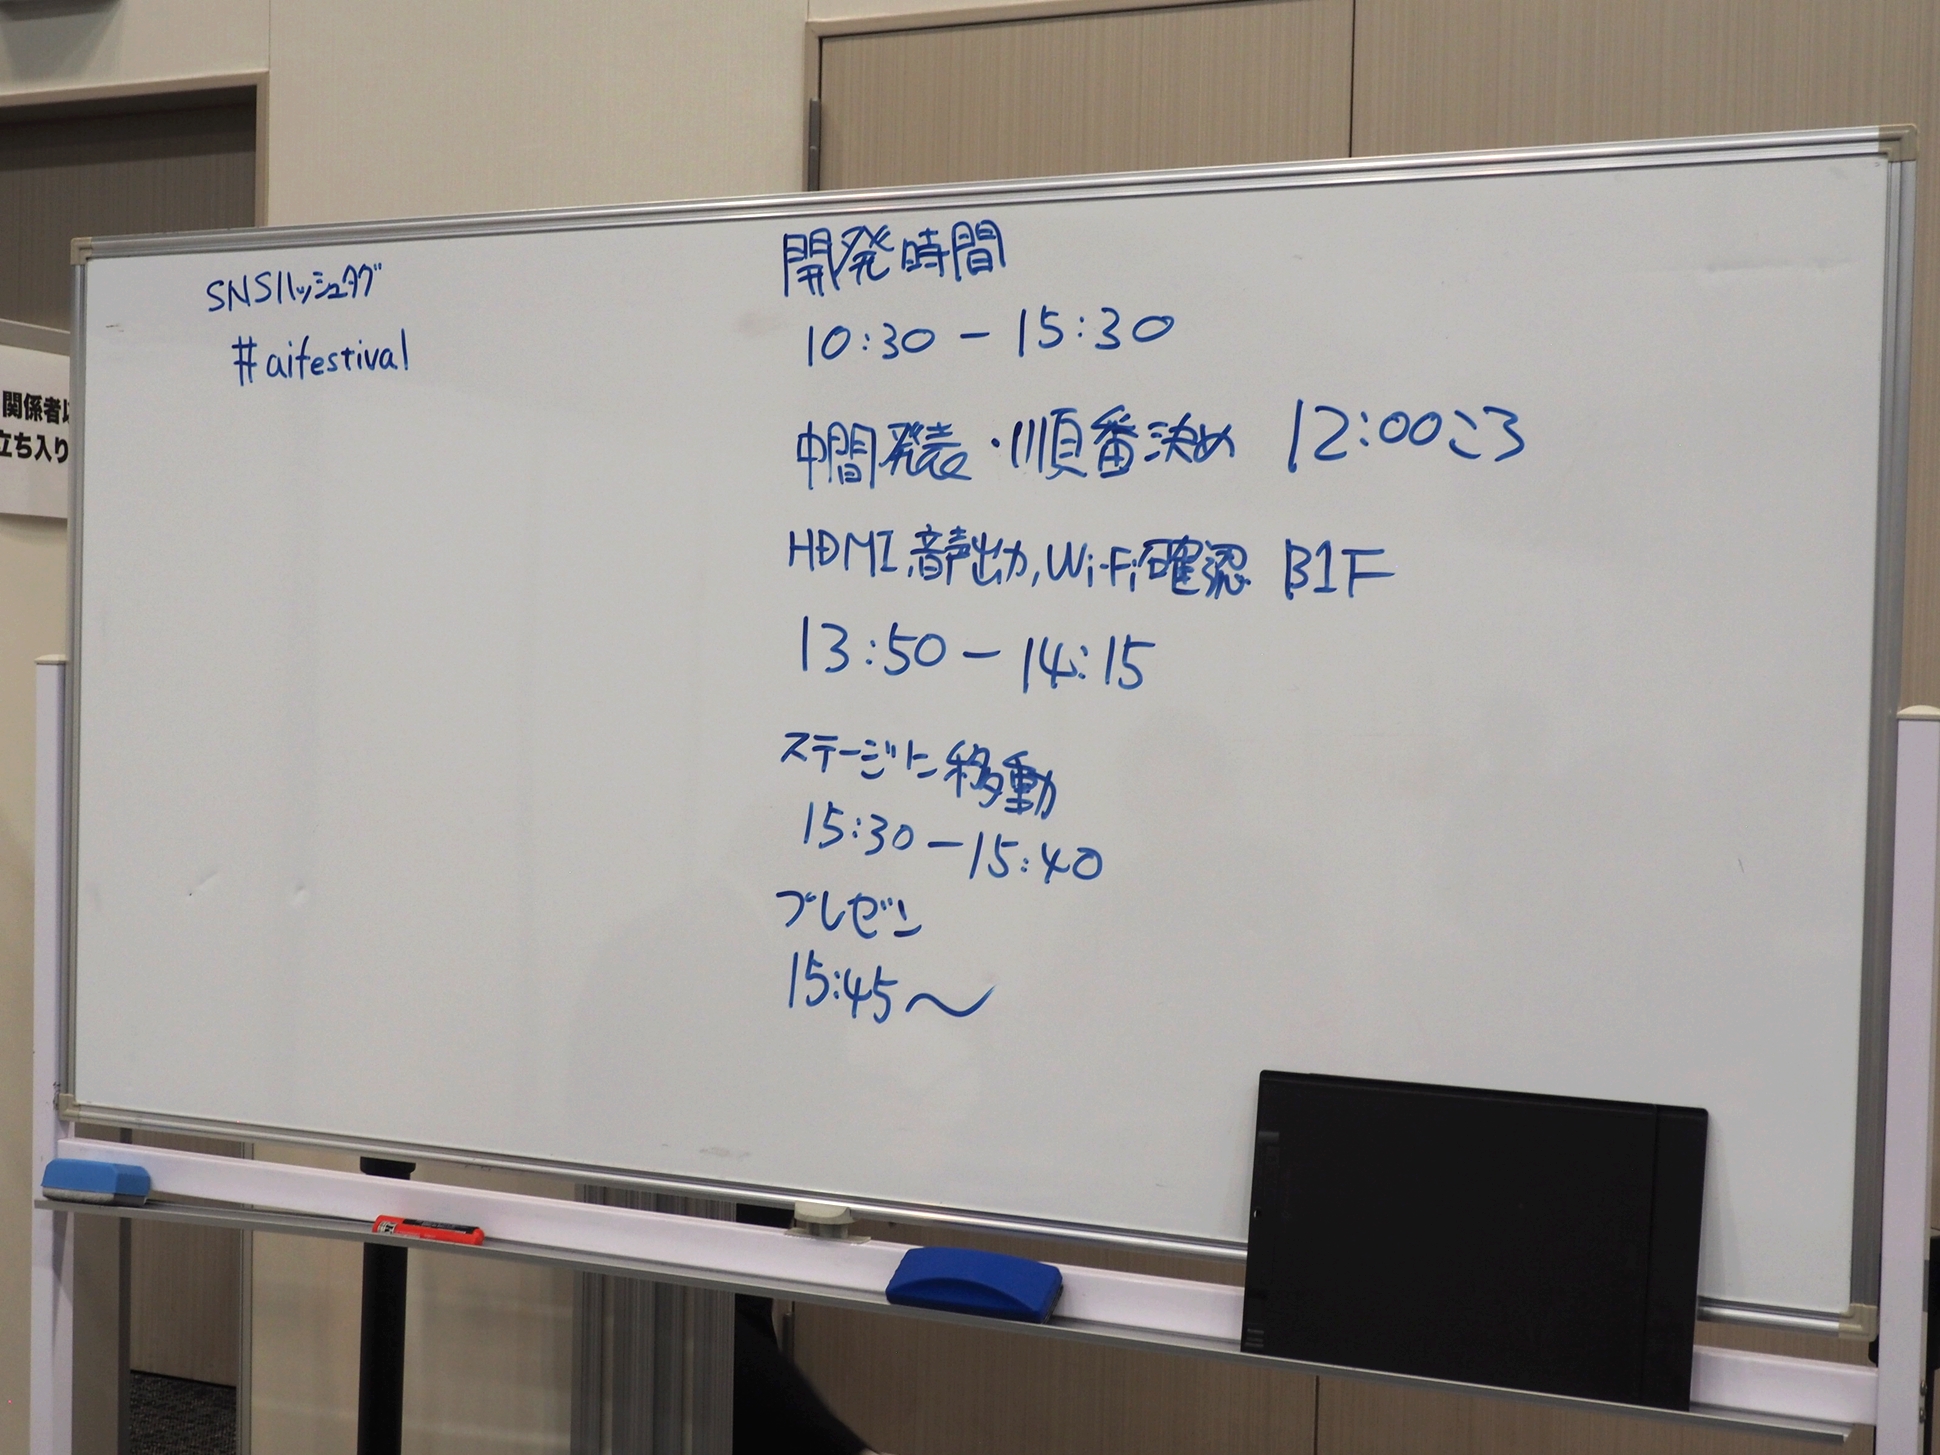 SNSハッシュタグ
#aifestival
開発時間
10:30 - 15:30
中間発表・順番決め 12:00ころ
HDMI,音声出力,Wi-Fi確認 B1F
13:50 - 14:15
ステージに移動
15:30 - 15:40
プレゼン
15:45〜
関係者以
立ち入り